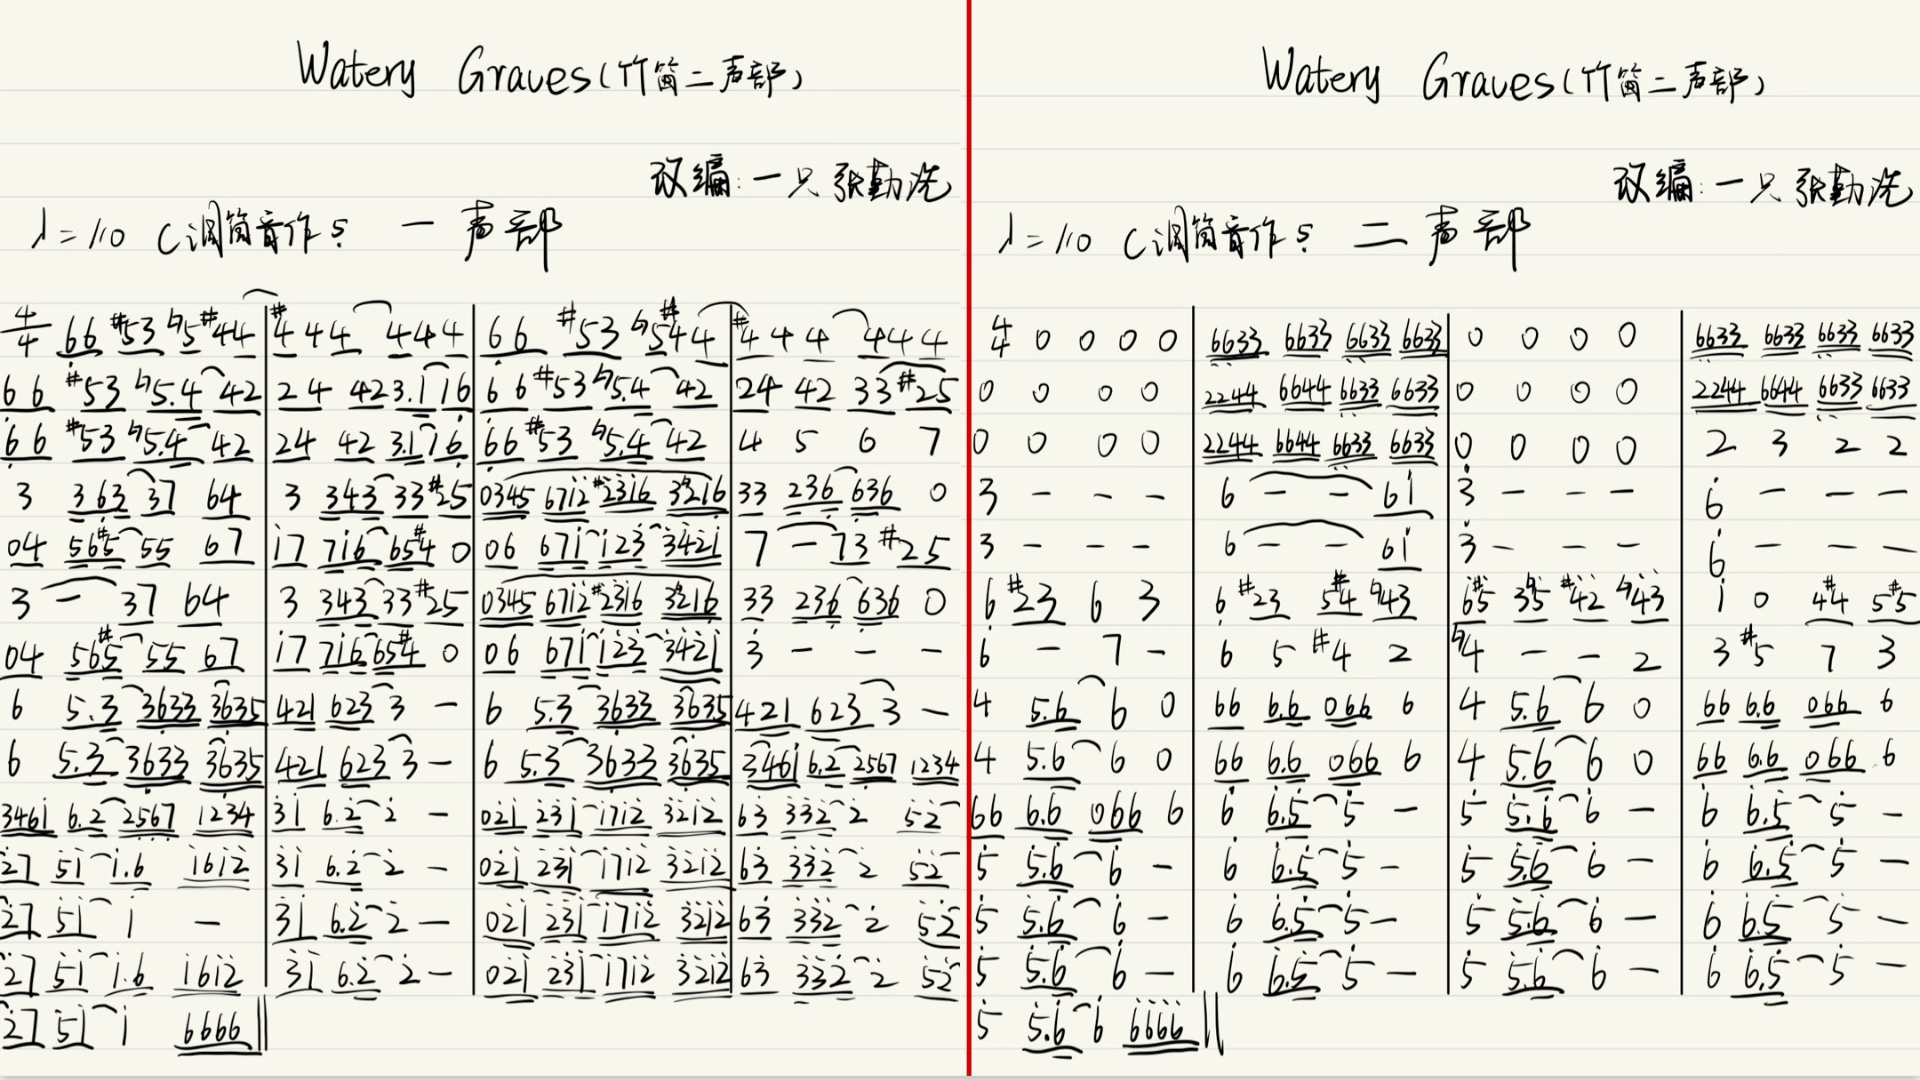 Watery Graves（竹笛二声部）
改编：一只张勤洗
♩=110 C调筒音作5 一声部
4/4 66 #53 ♮5#44 | #4 4 4 4 4 4 | 66 #53 ♮5#44 | #4 4 4 4 4 4
66 #53 ♮5.4 42 | 24 42 3.1 16 | 66 #53 ♮5.4 42 | 24 42 33 #25
66 #53 ♮5.4 42 | 24 42 3.1 76 | 66 #53 ♮5.4 42 | 4 5 6 7
3 363 37 64 | 3 343 33 #25 | 0345 6712 #2316 3216 | 33 236 636 0
04 56#5 55 67 | 17 716 65#4 0 | 06 671 123 3421 | 7 – 73 #25
3 – 37 64 | 3 343 33 #25 | 0345 6712 #2316 3216 | 33 236 636 0
04 56#5 55 67 | 17 716 65#4 0 | 06 671 123 3421 | 3 – – –
6 5.3 3633 3635 | 421 623 3 – | 6 5.3 3633 3635 | 421 623 3 –
6 5.3 3633 3635 | 421 623 3 – | 6 5.3 3633 3635 | 3461 6.2 2567 1234
3461 6.2 2567 1234 | 31 6.2 2 – | 021 231 1712 3212 | 63 332 2 52
27 51 1.6 1612 | 31 6.2 2 – | 021 231 1712 3212 | 63 332 2 52
27 51 1 – | 31 6.2 2 – | 021 231 1712 3212 | 63 332 2 52
27 51 1.6 1612 | 31 6.2 2 – | 021 231 1712 3212 | 63 332 2 52
27 51 1 6666 ||
Watery Graves（竹笛二声部）
改编：一只张勤洗
♩=110 C调筒音作5 二声部
4/4 0 0 0 0 | 6633 6633 6633 6633 | 0 0 0 0 | 6633 6633 6633 6633
0 0 0 0 | 2244 6644 6633 6633 | 0 0 0 0 | 2244 6644 6633 6633
0 0 0 0 | 2244 6644 6633 6633 | 0 0 0 0 | 2 3 2 2
3 – – – | 6 – – 61 | 3 – – – | 6 – – –
3 – – – | 6 – – 61 | 3 – – – | 6 – – –
6 #23 6 3 | 6 #23 5#4 ♮43 | 6#5 3♮5 #42 ♮43 | 1 0 4#4 5#5
6 – 7 – | 6 5 #4 2 | ♮4 – – 2 | 3 #5 7 3
4 5.6 6 0 | 66 6.6 066 6 | 4 5.6 6 0 | 66 6.6 066 6
4 5.6 6 0 | 66 6.6 066 6 | 4 5.6 6 0 | 66 6.6 066 6
66 6.6 066 6 | 6 6.5 5 – | 5 5.6 6 – | 6 6.5 5 –
5 5.6 6 – | 6 6.5 5 – | 5 5.6 6 – | 6 6.5 5 –
5 5.6 6 – | 6 6.5 5 – | 5 5.6 6 – | 6 6.5 5 –
5 5.6 6 – | 6 6.5 5 – | 5 5.6 6 – | 6 6.5 5 –
5 5.6 6 6666 ||